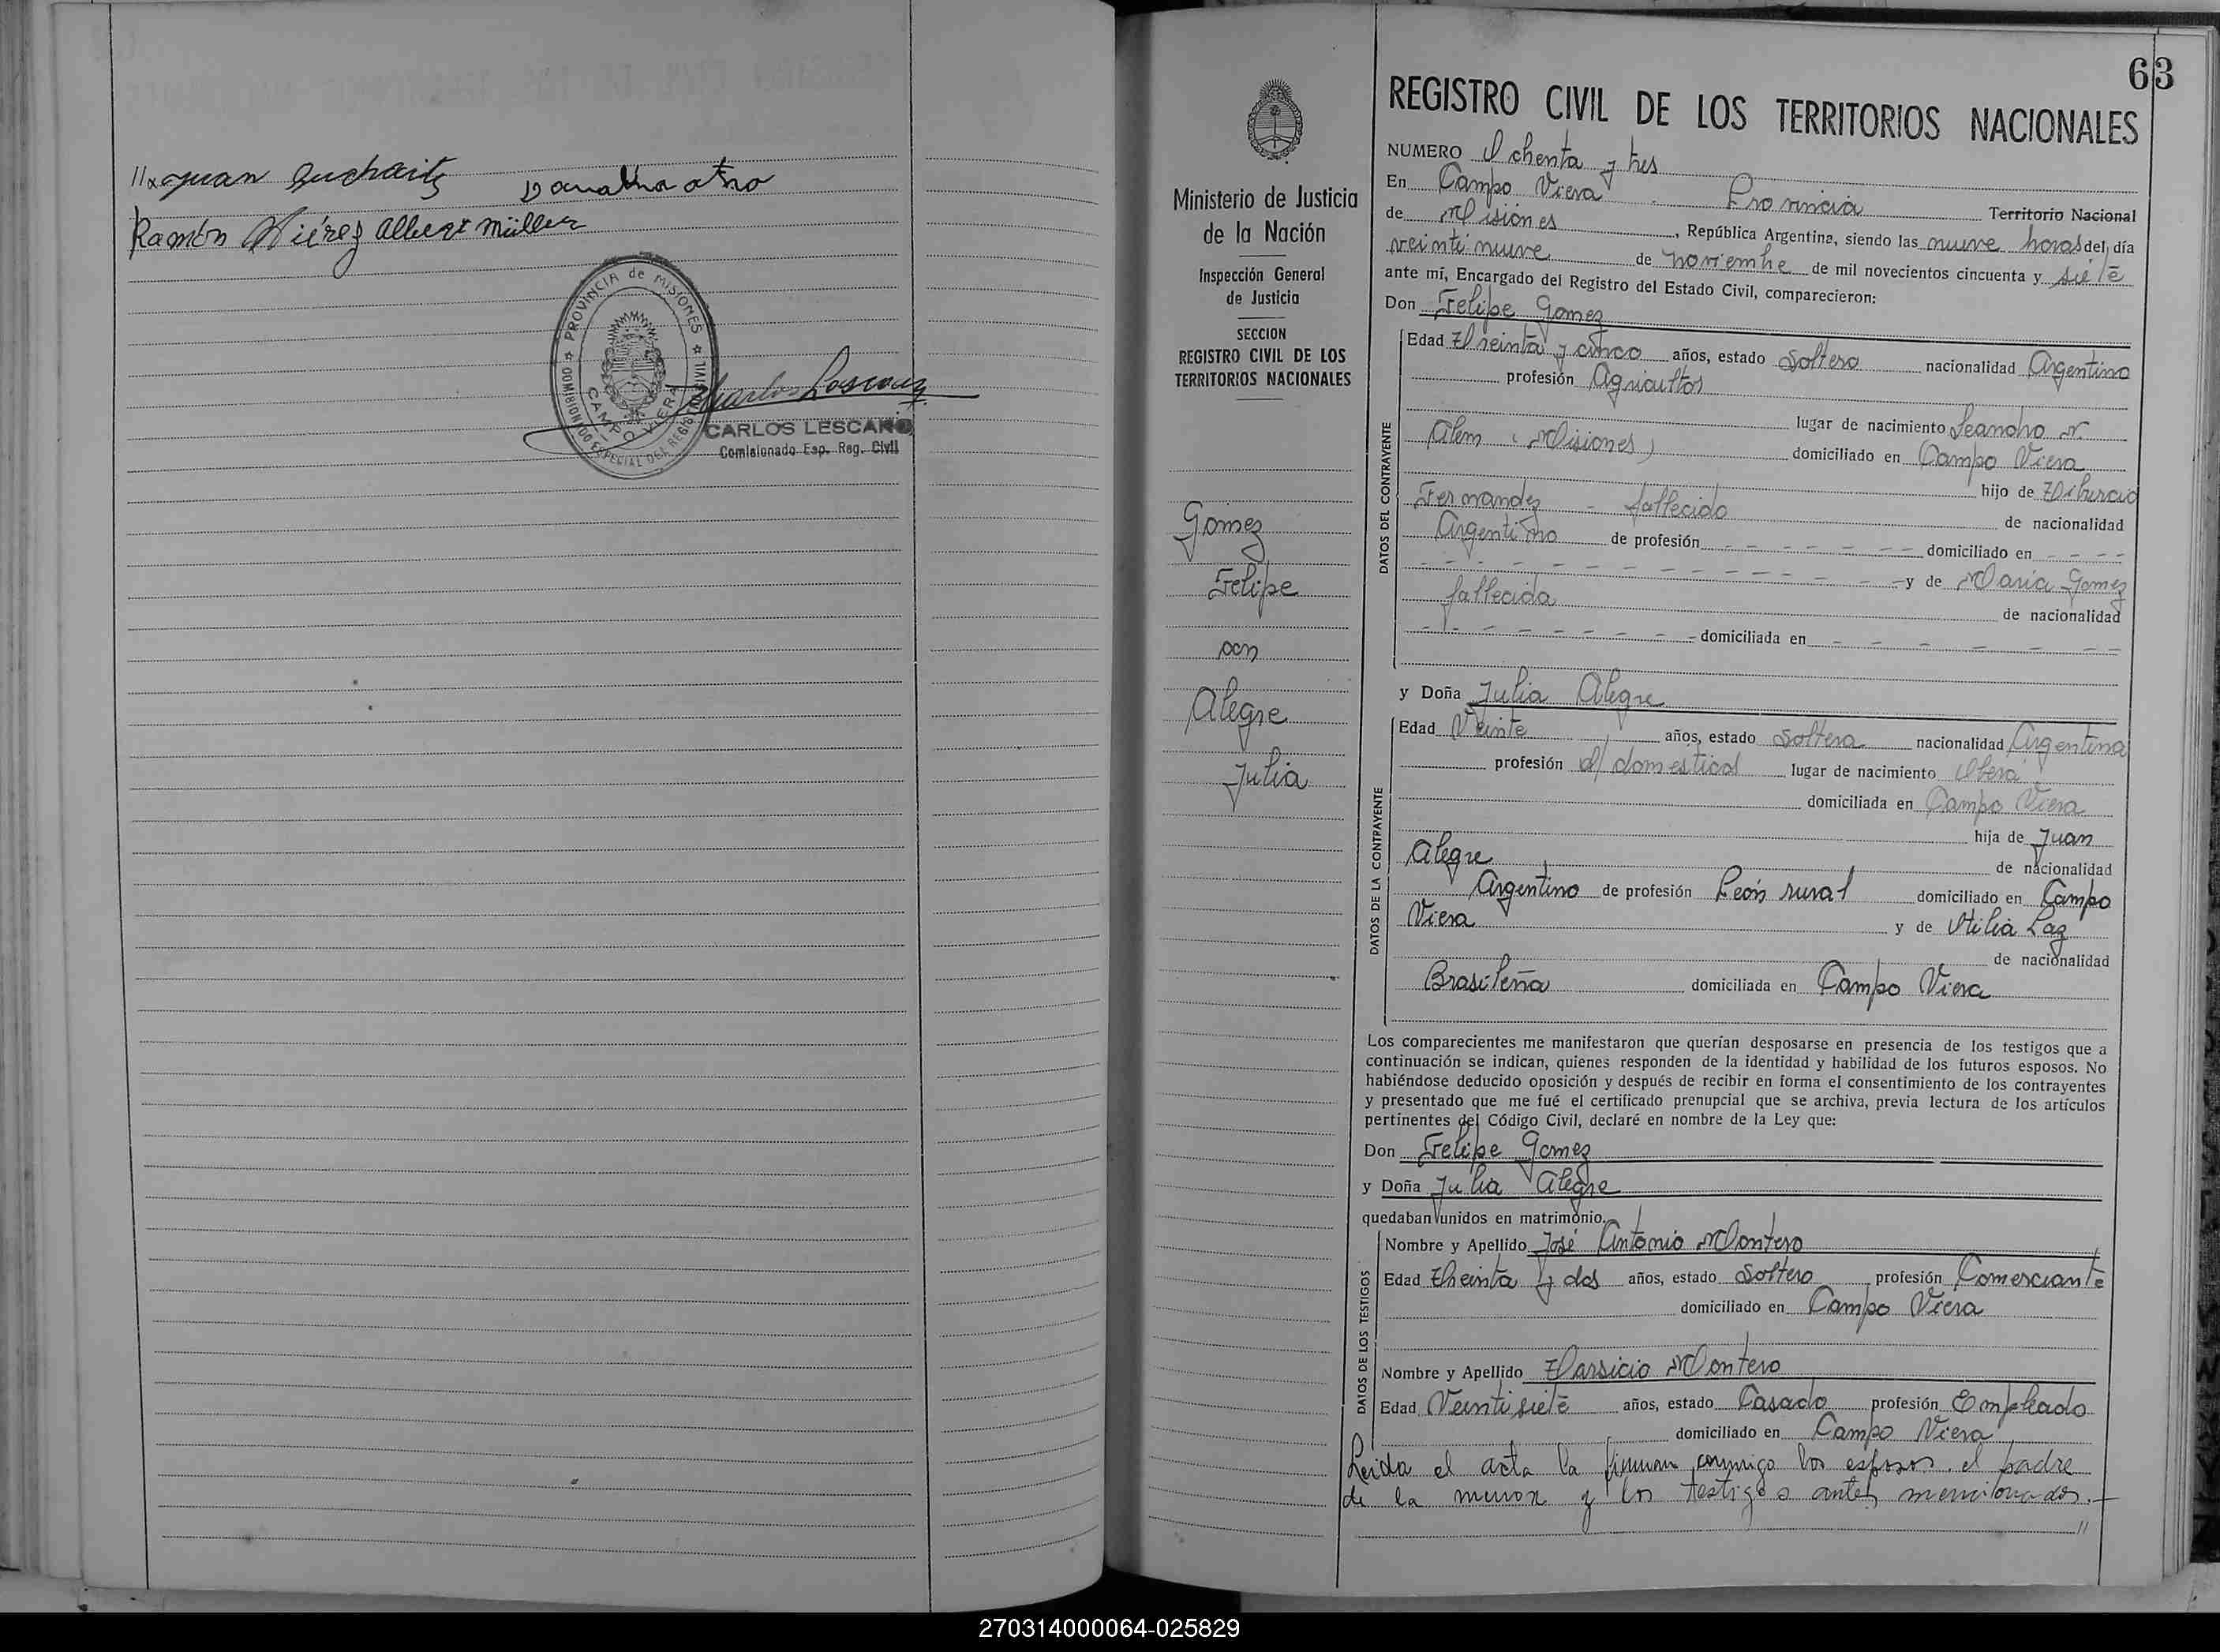 Juan
Ramón Albert Müller
PROVINCIA de MISIONES
CAMPO VIERA
CARLOS LESCANO
Comisionado Esp. Reg. Civil
63
Ministerio de Justicia
de la Nación
Inspección General
de Justicia
SECCION
REGISTRO CIVIL DE LOS
TERRITORIOS NACIONALES
Gomez
Felipe
con
Alegre
Julia
REGISTRO CIVIL DE LOS TERRITORIOS NACIONALES
NUMERO Ochenta y tres
En Campo Viera Provincia Territorio Nacional
de Misiones, República Argentina, siendo las nueve horas del día
veintinueve de noviembre de mil novecientos cincuenta y siete
ante mí, Encargado del Registro del Estado Civil, comparecieron:
Don Felipe Gomez
DATOS DEL CONTRAYENTE
Edad Treinta y cinco años, estado Soltero nacionalidad Argentino
profesión Agricultor
lugar de nacimiento Leandro N.
Alem (Misiones) domiciliado en Campo Viera
hijo de Tiburcio
Fernandez - fallecido de nacionalidad
Argentino de profesión - - - - - - domiciliado en - - - -
- - - - - - - - - - - - - y de Maria Gomez
fallecida de nacionalidad
- - - - - - - - domiciliada en - - - - - -
y Doña Julia Alegre
DATOS DE LA CONTRAYENTE
Edad Veinte años, estado Soltera nacionalidad Argentina
profesión Q/ domésticos lugar de nacimiento Oberá
domiciliada en Campo Viera
hija de Juan
Alegre de nacionalidad
Argentino de profesión Peón rural domiciliado en Campo
Viera y de Otilia Paz
de nacionalidad
Brasileña domiciliada en Campo Viera
Los comparecientes me manifestaron que querían desposarse en presencia de los testigos que a
continuación se indican, quienes responden de la identidad y habilidad de los futuros esposos. No
habiéndose deducido oposición y después de recibir en forma el consentimiento de los contrayentes
y presentado que me fué el certificado prenupcial que se archiva, previa lectura de los artículos
pertinentes del Código Civil, declaré en nombre de la Ley que:
Don Felipe Gomez
y Doña Julia Alegre
quedaban unidos en matrimonio.
DATOS DE LOS TESTIGOS
Nombre y Apellido José Antonio Montero
Edad Treinta y dos años, estado Soltero profesión Comerciante
domiciliado en Campo Viera
Nombre y Apellido Tarsicio Montero
Edad Veintisiete años, estado Casado profesión Empleado
domiciliado en Campo Viera
Leida el acta la firman conmigo los esposos, el padre
de la menor y los testigos antes mencionados.-
//
270314000064-025829